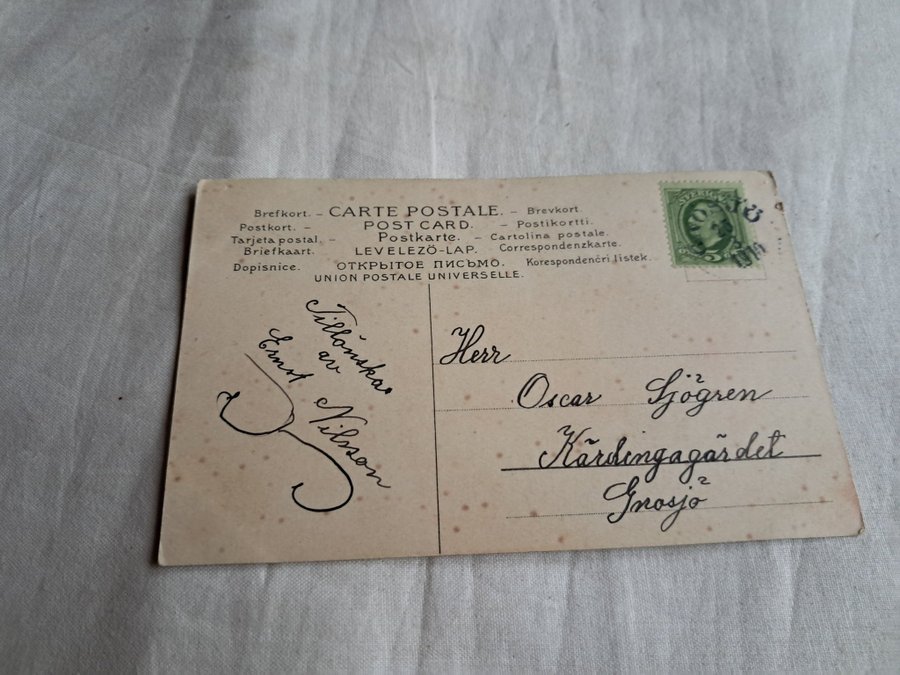 Brefkort. – CARTE POSTALE. – Brevkort.
Postkort. – POST CARD. – Postikortti.
Tarjeta postal. – Postkarte. – Cartolina postale.
Briefkaart. LEVELEZÖ-LAP. Correspondenzkarte.
Dopisnice. ОТКРЫТОЕ ПИСЬМО. Korespondenčri listek.
UNION POSTALE UNIVERSELLE.
Tillönskas
av
Ernst Nilsson
Herr
Oscar Sjögren
Kärdingagärdet
Gnosjö
SVERIGE
5